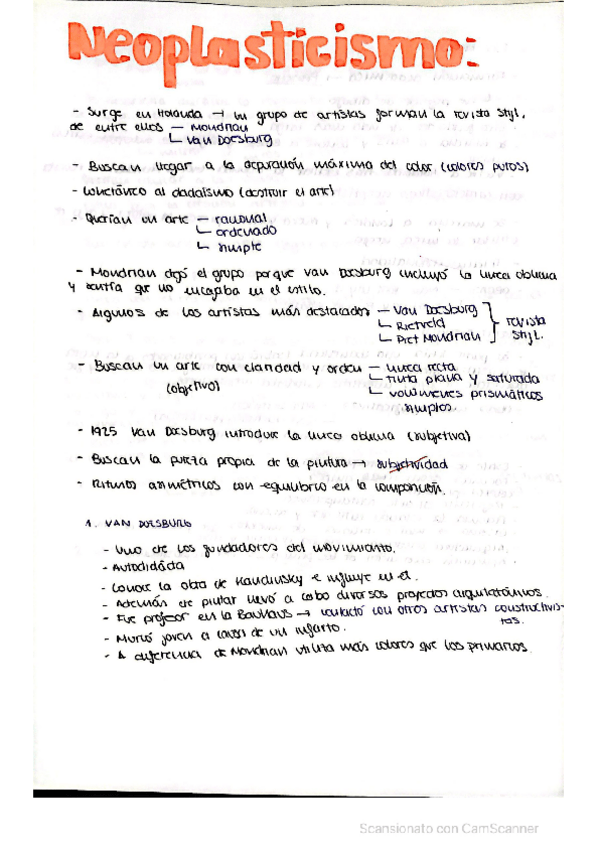 Neoplasticismo:
- Surge en Holanda → un grupo de artistas forman la revista Styl,
de entre ellos — Mondrian
└ Van Doesburg
- Buscan llegar a la depuración máxima del color (colores puros)
- Contrario al dadaísmo (destruir el arte)
- Querían un arte — racional
└ ordenado
└ simple
- Mondrian dejó el grupo porque Van Doesburg incluyó la línea oblicua
y sentía que no encajaba en el estilo.
- Algunos de los artistas más destacados — Van Doesburg
└ Rietveld
└ Piet Mondrian
} revista
Styl.
- Buscan un arte con claridad y orden — línea recta
(objetivo) └ tinta plana y saturada
└ volúmenes prismáticos
simples.
- 1925 Van Doesburg introduce la línea oblicua (subjetiva)
- Buscan la pureza propia de la pintura → subjetividad
- Ritmos asimétricos con equilibrio en la composición.
1. VAN DOESBURG
- Uno de los fundadores del movimiento.
- Autodidacta
- Conoce la obra de Kandinsky e influye en él.
- Además de pintar llevó a cabo diversos proyectos arquitectónicos.
- Fue profesor en la Bauhaus → contactó con otros artistas constructivis-
tas.
- Murió joven a causa de un infarto.
- A diferencia de Mondrian utiliza más colores que los primarios.
Scansionato con CamScanner